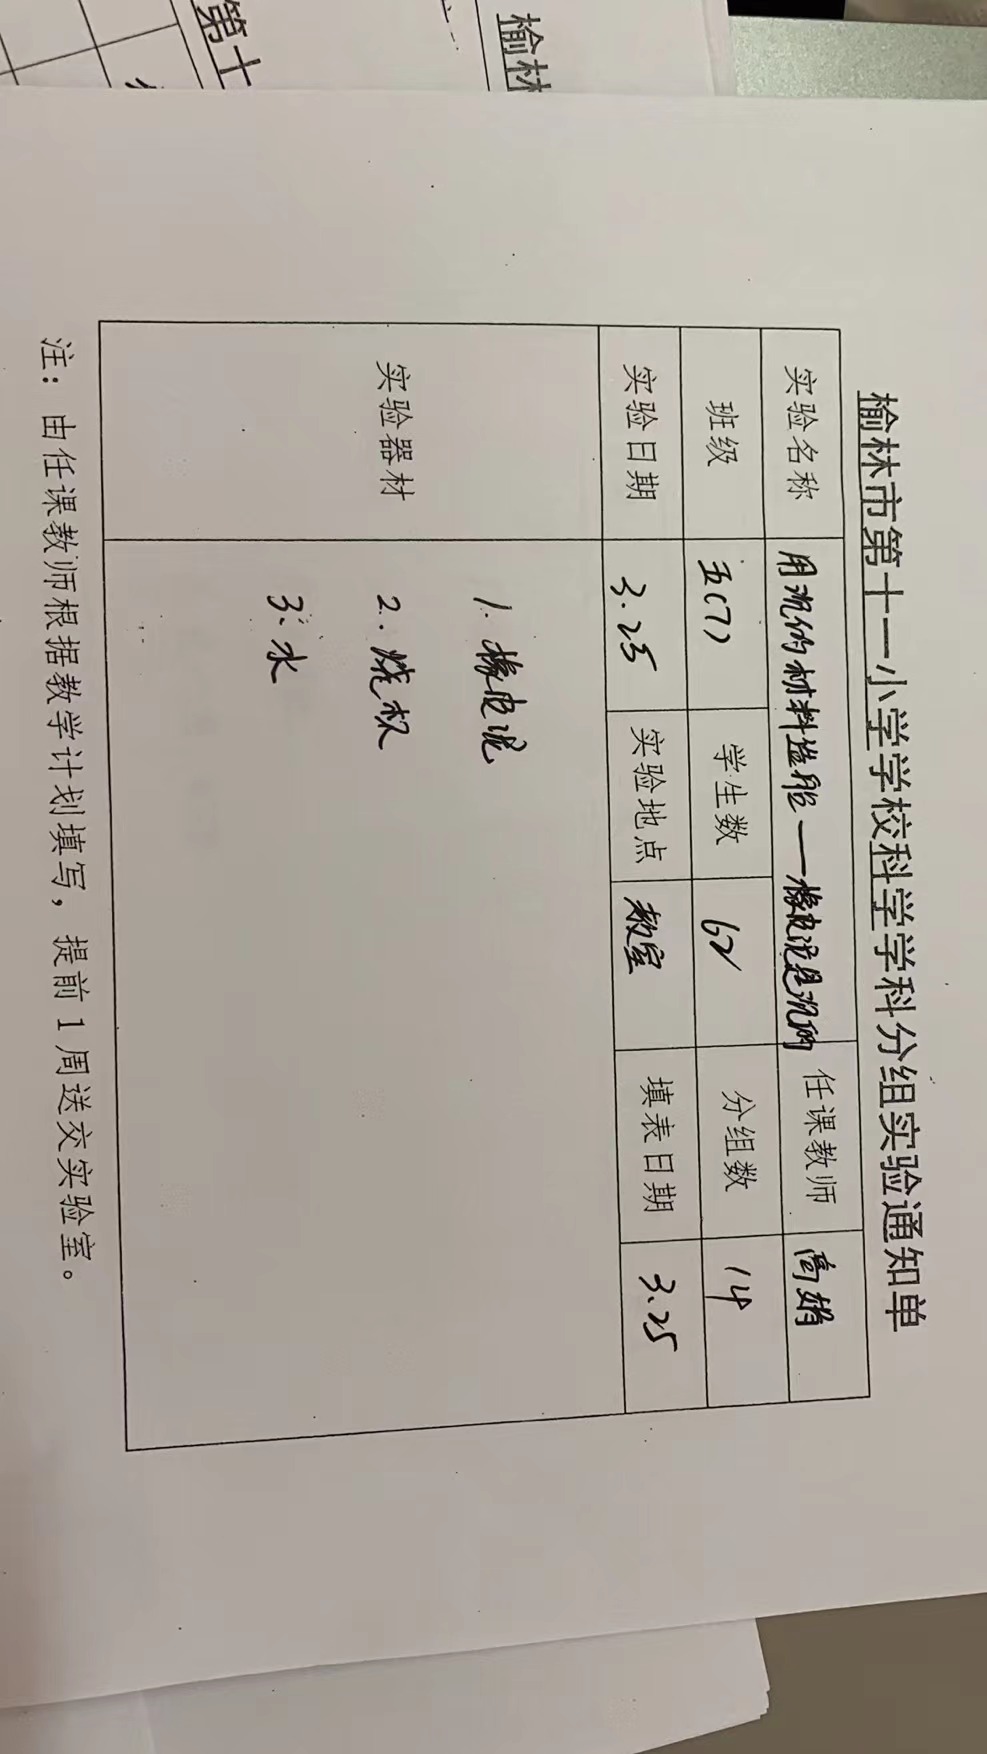 榆林市第十一小学学校科学学科分组实验通知单
实验名称 用沉的材料造船——橡皮泥是沉的 任课教师 高娟
班级 五(7) 学生数 62 分组数 14
实验日期 3.25 实验地点 教室 填表日期 3.25
实验器材
1. 橡皮泥
2. 烧杯
3. 水
注：由任课教师根据教学计划填写，提前1周送交实验室。
榆林
第十